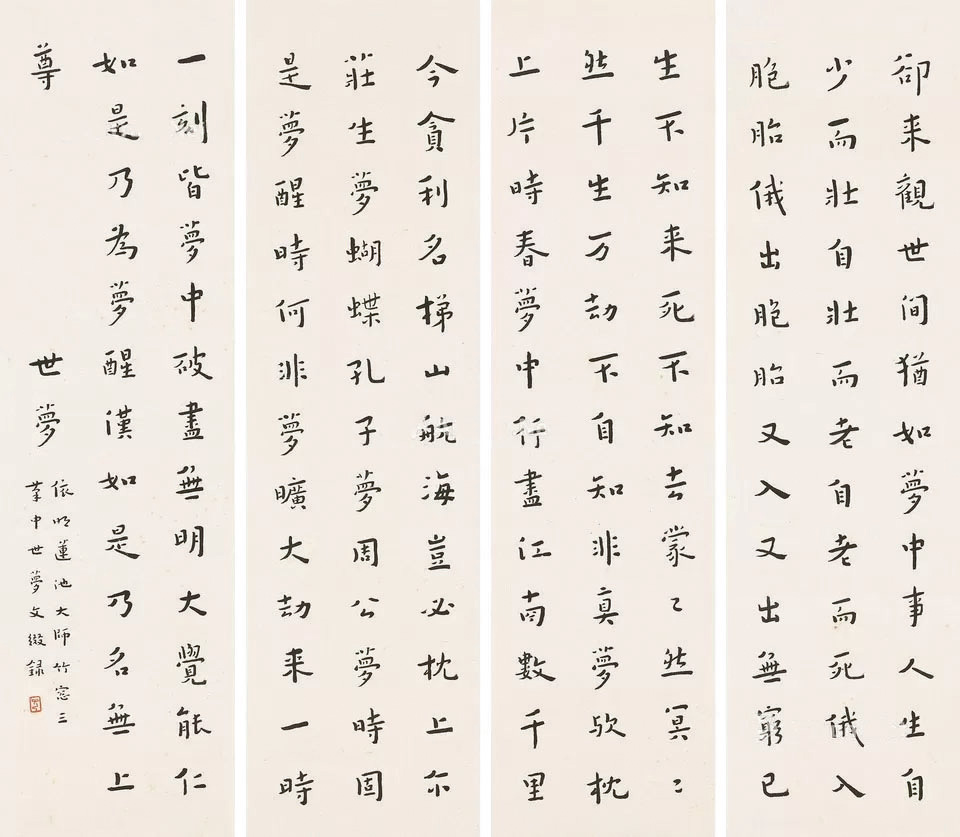 卻来觀世间猶如夢中事人生自
少而壯自壯而老自老而死俄入
胞胎俄出胞胎又入又出無窮已
生不知来死不知去蒙〻然冥〻
然千生万劫不自知非真夢欤枕
上片時春夢中行盡江南數千里
今貪利名梯山航海豈必枕上尔
莊生夢蝴蝶孔子夢周公夢時固
是夢醒時何非夢曠大劫来一時
一刻皆夢中破盡無明大覺能仁
如是乃為夢醒漢如是乃名無上
尊 世夢
依明蓮池大師竹窓三
筆中世夢文綴録